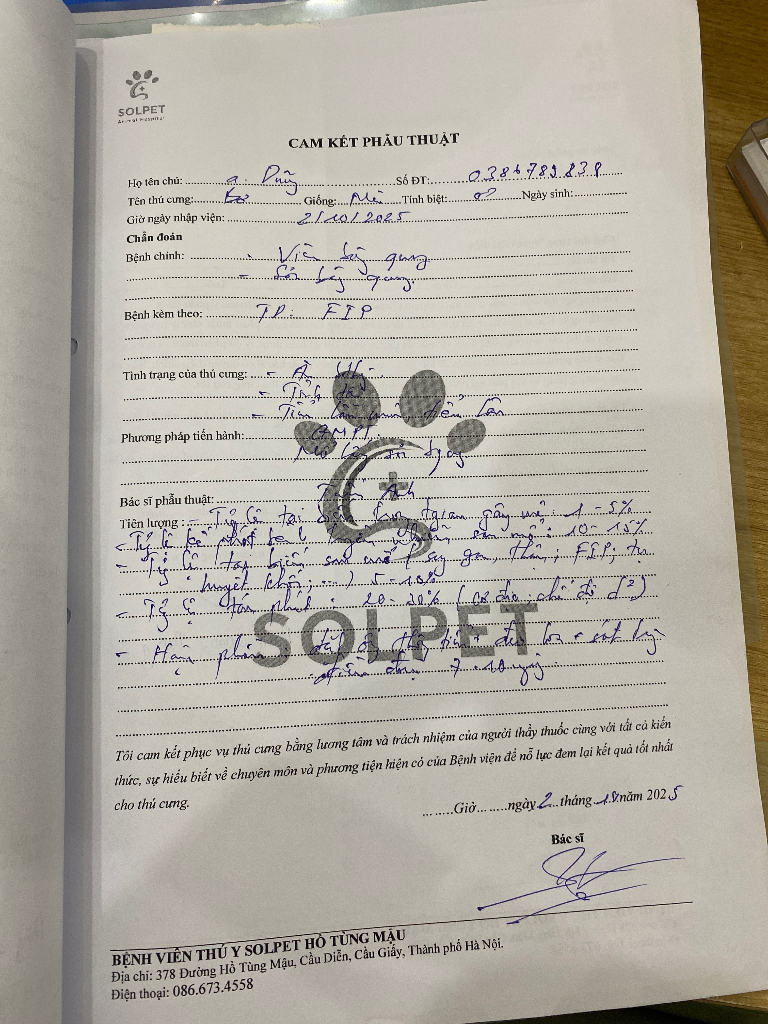 SOLPET
Animal Hospital
CAM KẾT PHẪU THUẬT
Họ tên chủ: a. Dũng Số ĐT: 0386789839
Tên thú cưng: Giống: Mèo Tính biệt: ♂ Ngày sinh:
Giờ ngày nhập viện: 2/10/2025
Chẩn đoán
Bệnh chính: - Viêm bàng quang
- Sỏi bàng quang.
Bệnh kèm theo: TD: FIP
Tình trạng của thú cưng: - Ăn
- Tỉnh táo
- Tiểu
Phương pháp tiến hành:
Mổ lấy sỏi bàng quang
Bác sĩ phẫu thuật: Anh
Tiên lượng: - Tỷ lệ tai biến trong gian gây mê: 1 - 5%
- Tỷ lệ kế phát mổ: 10 - 15%
- Tỷ lệ tai biến sau mổ (suy gan, thận; FIP; tụ
huyết khối; ...) 5 - 10%
- Tỷ lệ tái phát: 20 - 30% (chế độ)
- Hậu phẫu: đặt ống thông tiểu, đeo loa + sát trùng
7 - 10 ngày
SOLPET
Tôi cam kết phục vụ thú cưng bằng lương tâm và trách nhiệm của người thầy thuốc cùng với tất cả kiến
thức, sự hiểu biết về chuyên môn và phương tiện hiện có của Bệnh viện để nỗ lực đem lại kết quả tốt nhất
cho thú cưng.
........Giờ........ngày 2 tháng 10 năm 2025
Bác sĩ
BỆNH VIỆN THÚ Y SOLPET HỒ TÙNG MẬU
Địa chỉ: 378 Đường Hồ Tùng Mậu, Cầu Diễn, Cầu Giấy, Thành phố Hà Nội.
Điện thoại: 086.673.4558